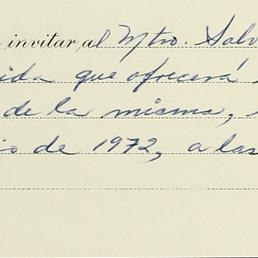 invitar al Mtro. Salv
ida que ofrecerá
de la misma,
o de 1972, a las